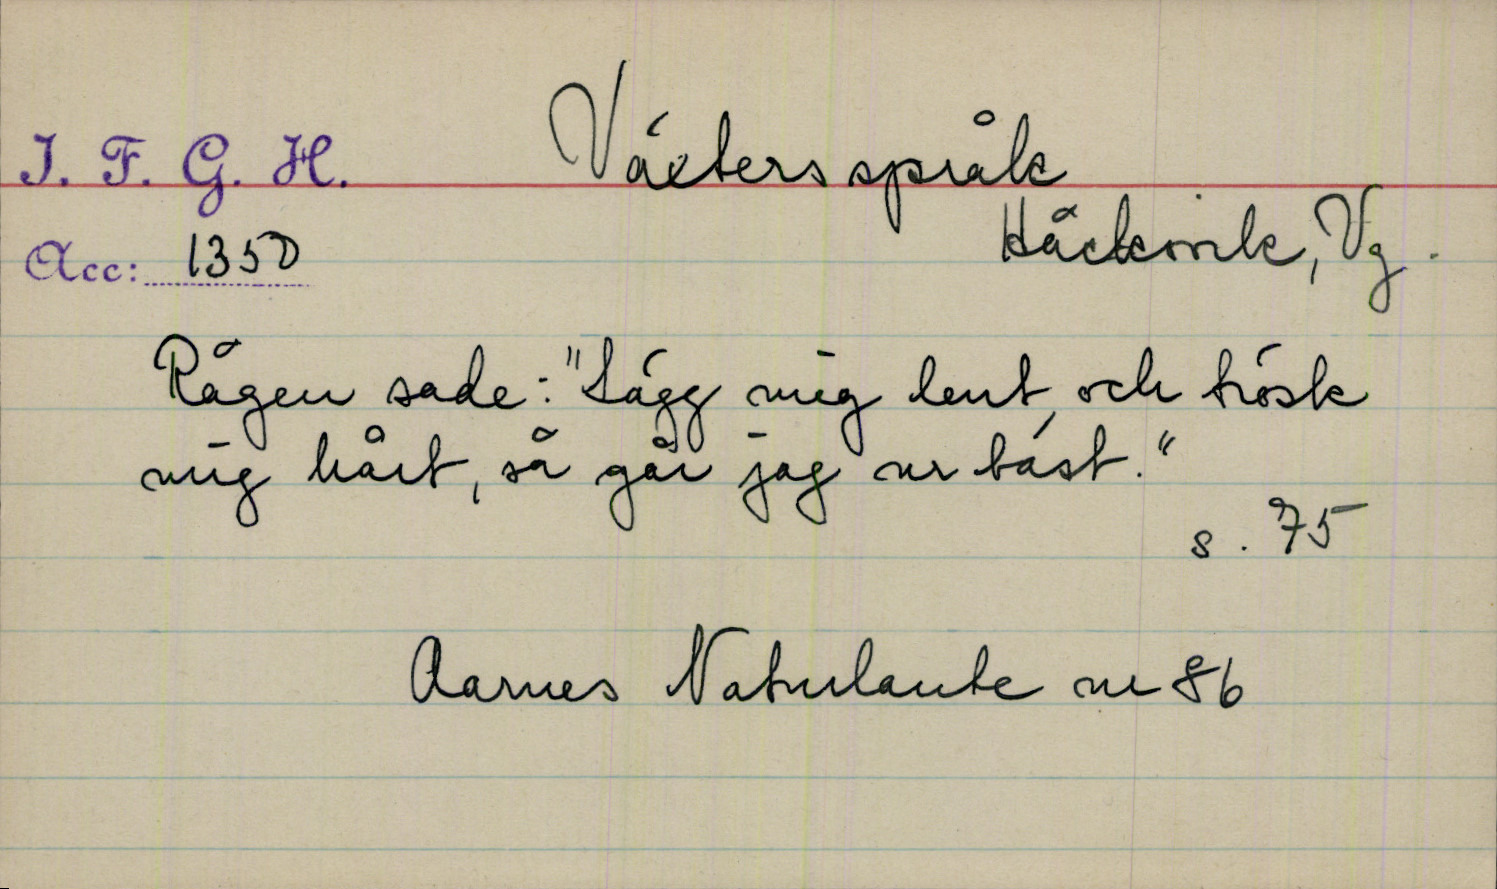 I. F. G. H.
Växters språk
Acc: 1350
Häckvik, Vg.
Rågen sade: "Lägg mig lent, och trösk
mig hårt, så går jag ur bäst."
s. 75
Aarnes Naturlaute nr 86